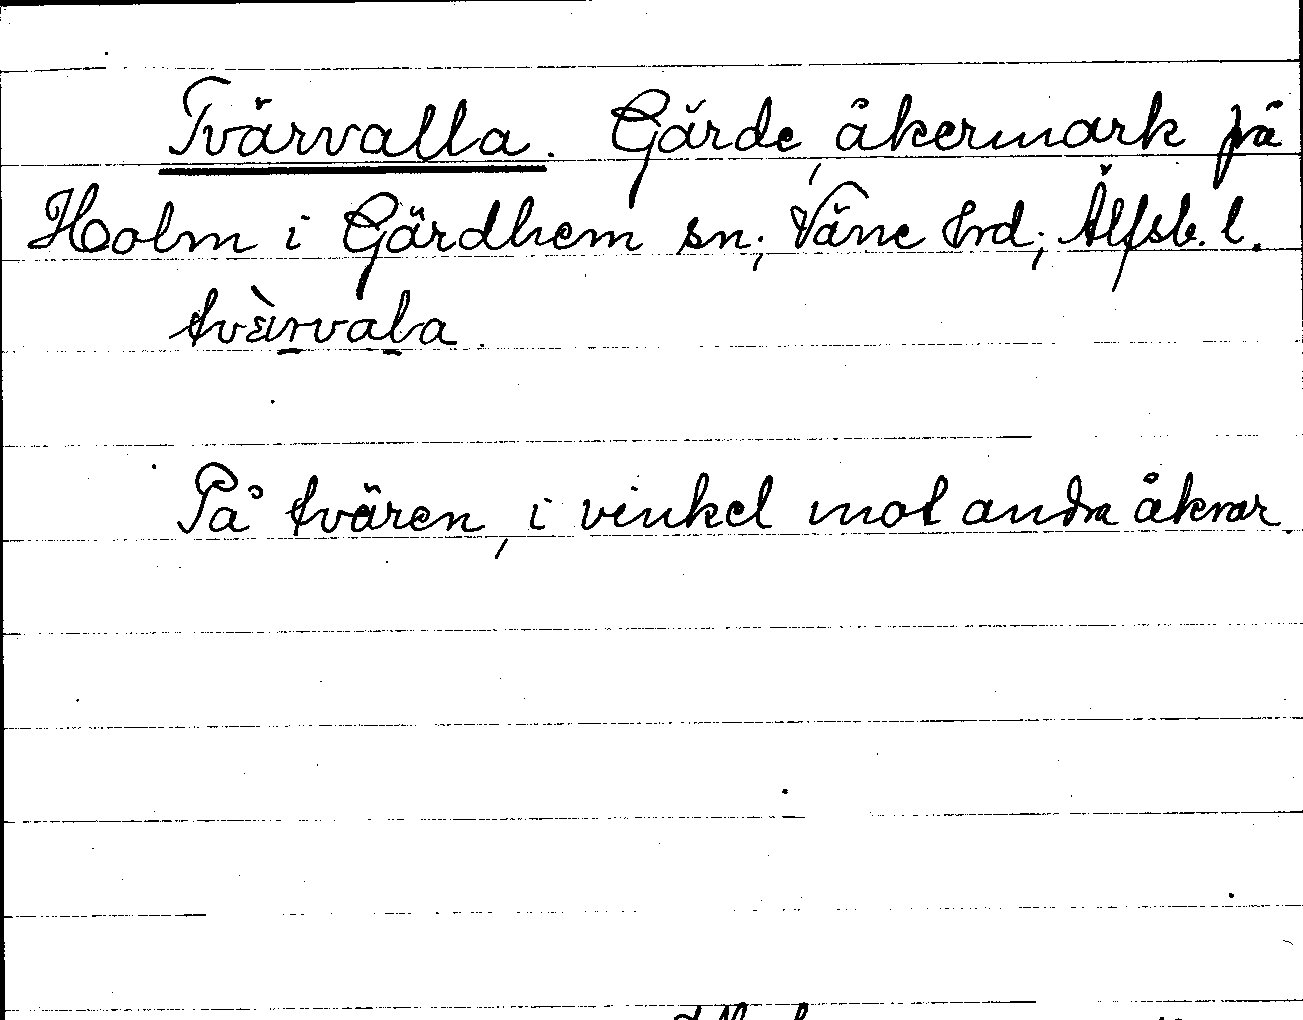 Tvärvalla. Gärde, åkermark på
Holm i Gärdhem sn; Väne hrd; Älfsb. l.
tvàrvala.
På tvären, i vinkel mot andra åkrar.